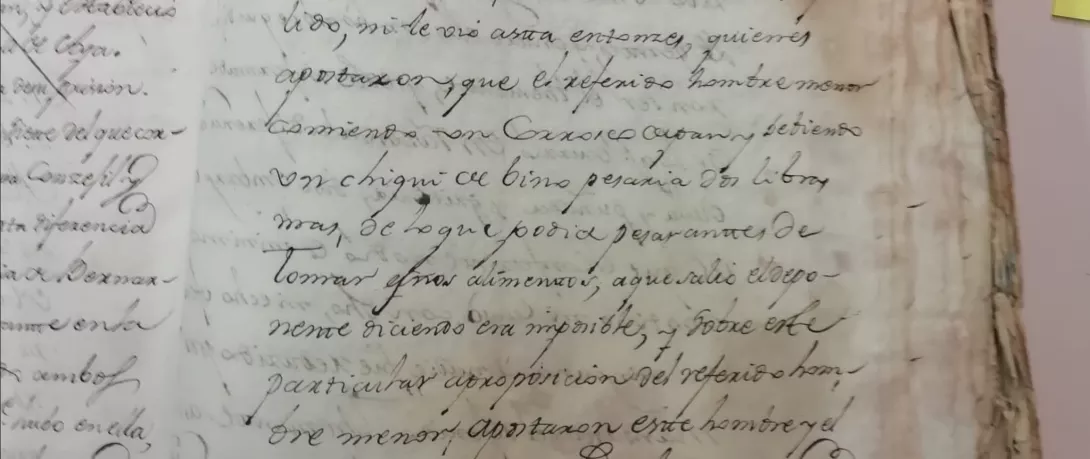 n, y establecio
de Oya.
prision.
del que cor-
diferencia
de Bernar-
ante en la
ambos
hubo en ella,
lido, ni le vio asta entonzes, quienes
apostaron, que el referido hombre menor
comiendo un Corrosco de pan y bebiendo
un chiqui de bino pesaria dos libras
mas, de lo que podia pesar antes de
tomar esos alimentos, a que salio el depo-
nente diciendo era imposible, y sobre este
particular a proposicion del referido hom-
bre menor, apostaron este hombre y el